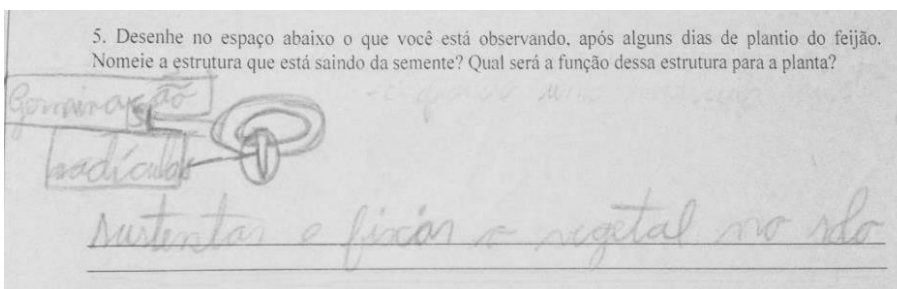 5. Desenhe no espaço abaixo o que você está observando, após alguns dias de plantio do feijão.
Nomeie a estrutura que está saindo da semente? Qual será a função dessa estrutura para a planta?
Germinação
radícula
sustentar e fixar o vegetal no solo